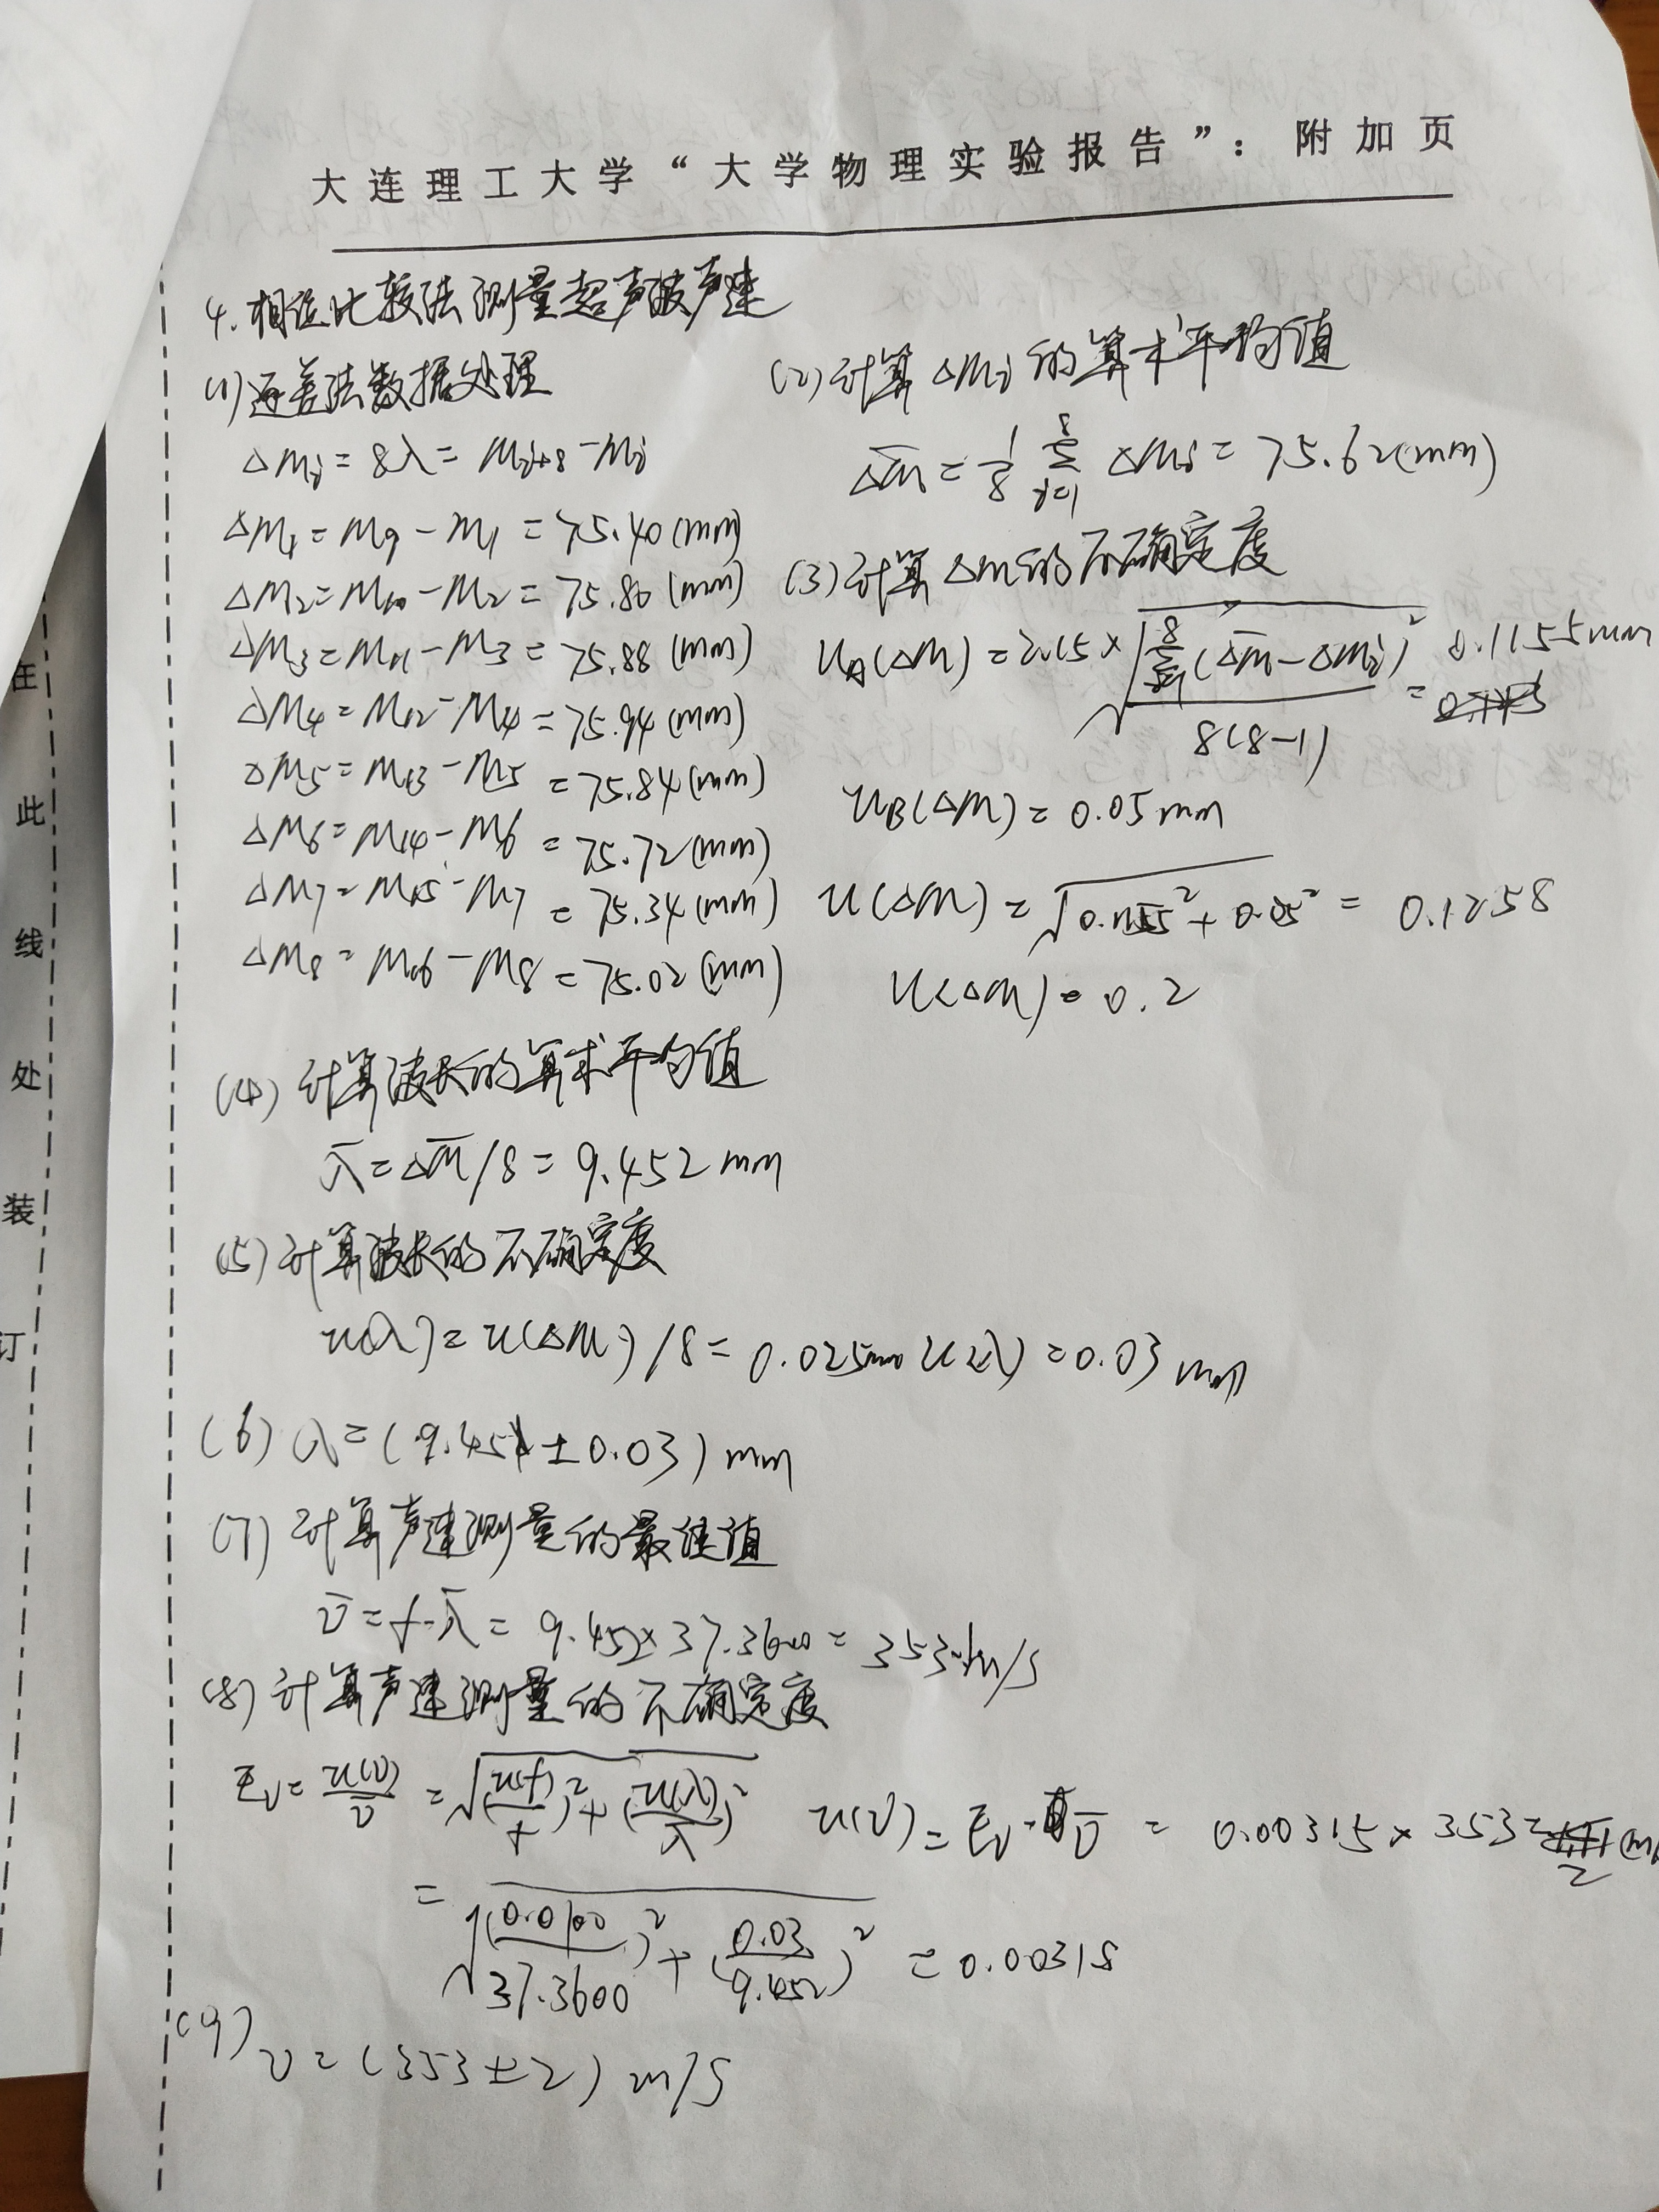 大连理工大学“大学物理实验报告”：附加页
4.相位比较法测量超声波声速
(1)逐差法数据处理
ΔMi=8λ=Mi+8-Mi
ΔM1=M9-M1=75.40(mm)
ΔM2=M10-M2=75.80(mm)
ΔM3=M11-M3=75.88(mm)
ΔM4=M12-M4=75.94(mm)
ΔM5=M13-M5=75.84(mm)
ΔM6=M14-M6=75.72(mm)
ΔM7=M15-M7=75.34(mm)
ΔM8=M16-M8=75.02(mm)
(2)计算ΔMi的算术平均值
ΔM̄=1/8 Σ(i=1→8) ΔMi=75.62(mm)
(3)计算ΔM的不确定度
uA(ΔM)=×√(Σ(ΔM̄-ΔMi)²/8(8-1))=0.1155mm
uB(ΔM)=0.05mm
u(ΔM)=√(0.1155²+0.05²)=0.1258
u(ΔM)=0.2
(4)计算波长的算术平均值
λ̄=ΔM̄/8=9.452mm
(5)计算波长的不确定度
u(λ)=u(ΔM)/8=0.025mm u(λ)=0.03mm
(6)λ=(9.45±0.03)mm
(7)计算声速测量的最佳值
v̄=f·λ̄=9.452×37.3600=353m/s
(8)计算声速测量的不确定度
Ev=u(v)/v̄=√((u(f)/f)²+(u(λ)/λ̄)²)
u(v)=Ev·v̄=0.00315×353=2
=√((0.0100/37.3600)²+(0.03/9.452)²)=0.00318
(9)v=(353±2)m/s
在
此
线
处
装
订